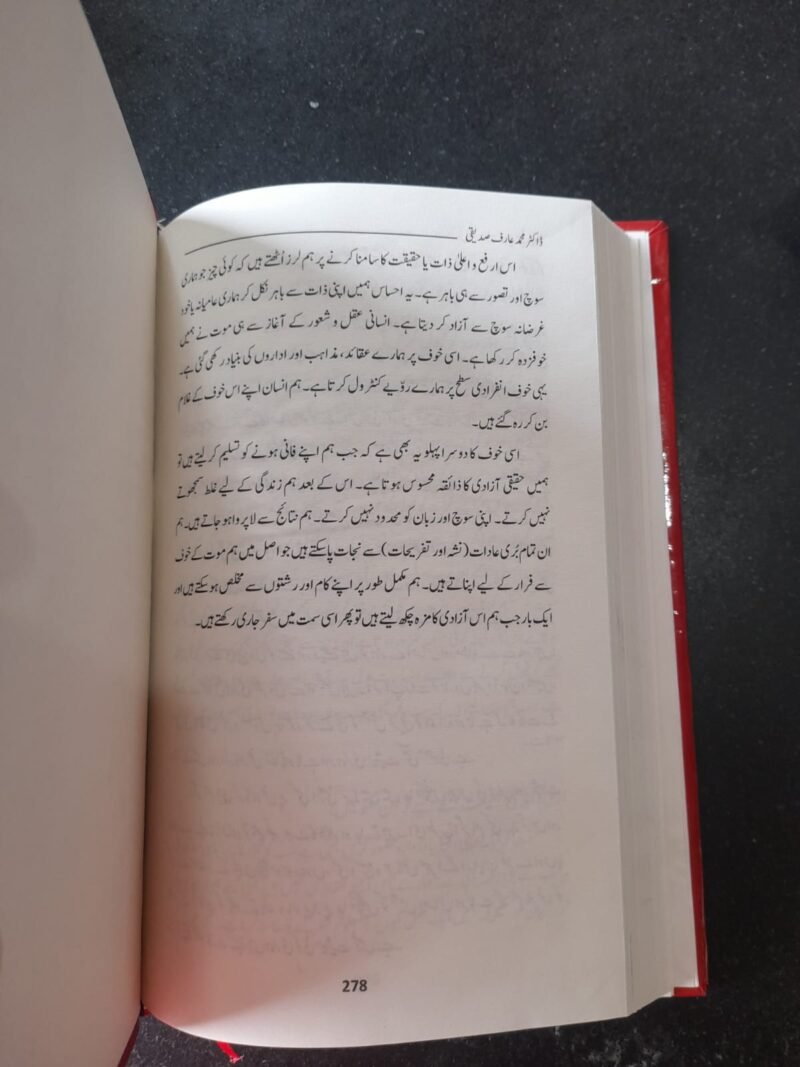 ڈاکٹر محمد عارف صدیقی
اس ارفع و اعلیٰ ذات یا حقیقت کا سامنا کرنے پر ہم لرز اُٹھتے ہیں کہ کوئی چیز جو ہماری
سوچ اور تصور سے ہی باہر ہے۔ یہ احساس ہمیں اپنی ذات سے باہر نکل کر ہماری عامیانہ یا خود
غرضانہ سوچ سے آزاد کر دیتا ہے۔ انسانی عقل و شعور کے آغاز سے ہی موت نے ہمیں
خوفزدہ کر رکھا ہے۔ اسی خوف پر ہمارے عقائد، مذاہب اور اداروں کی بنیاد رکھی گئی ہے۔
یہی خوف انفرادی سطح پر ہمارے روّیے کنٹرول کرتا ہے۔ ہم انسان اپنے اس خوف کے غلام
بن کر رہ گئے ہیں۔
اسی خوف کا دوسرا پہلو یہ بھی ہے کہ جب ہم اپنے فانی ہونے کو تسلیم کر لیتے ہیں تو
ہمیں حقیقی آزادی کا ذائقہ محسوس ہوتا ہے۔ اس کے بعد ہم زندگی کے لیے غلط سمجھوتے
نہیں کرتے۔ اپنی سوچ اور زبان کو محدود نہیں کرتے۔ ہم نتائج سے لا پرواہو جاتے ہیں۔ ہم
ان تمام بُری عادات (نشہ اور تفریحات) سے نجات پا سکتے ہیں جو اصل میں ہم موت کے خوف
سے فرار کے لیے اپناتے ہیں۔ ہم مکمل طور پر اپنے کام اور رشتوں سے مخلص ہو سکتے ہیں اور
ایک بار جب ہم اس آزادی کا مزہ چکھ لیتے ہیں تو پھر اسی سمت میں سفر جاری رکھتے ہیں۔
278